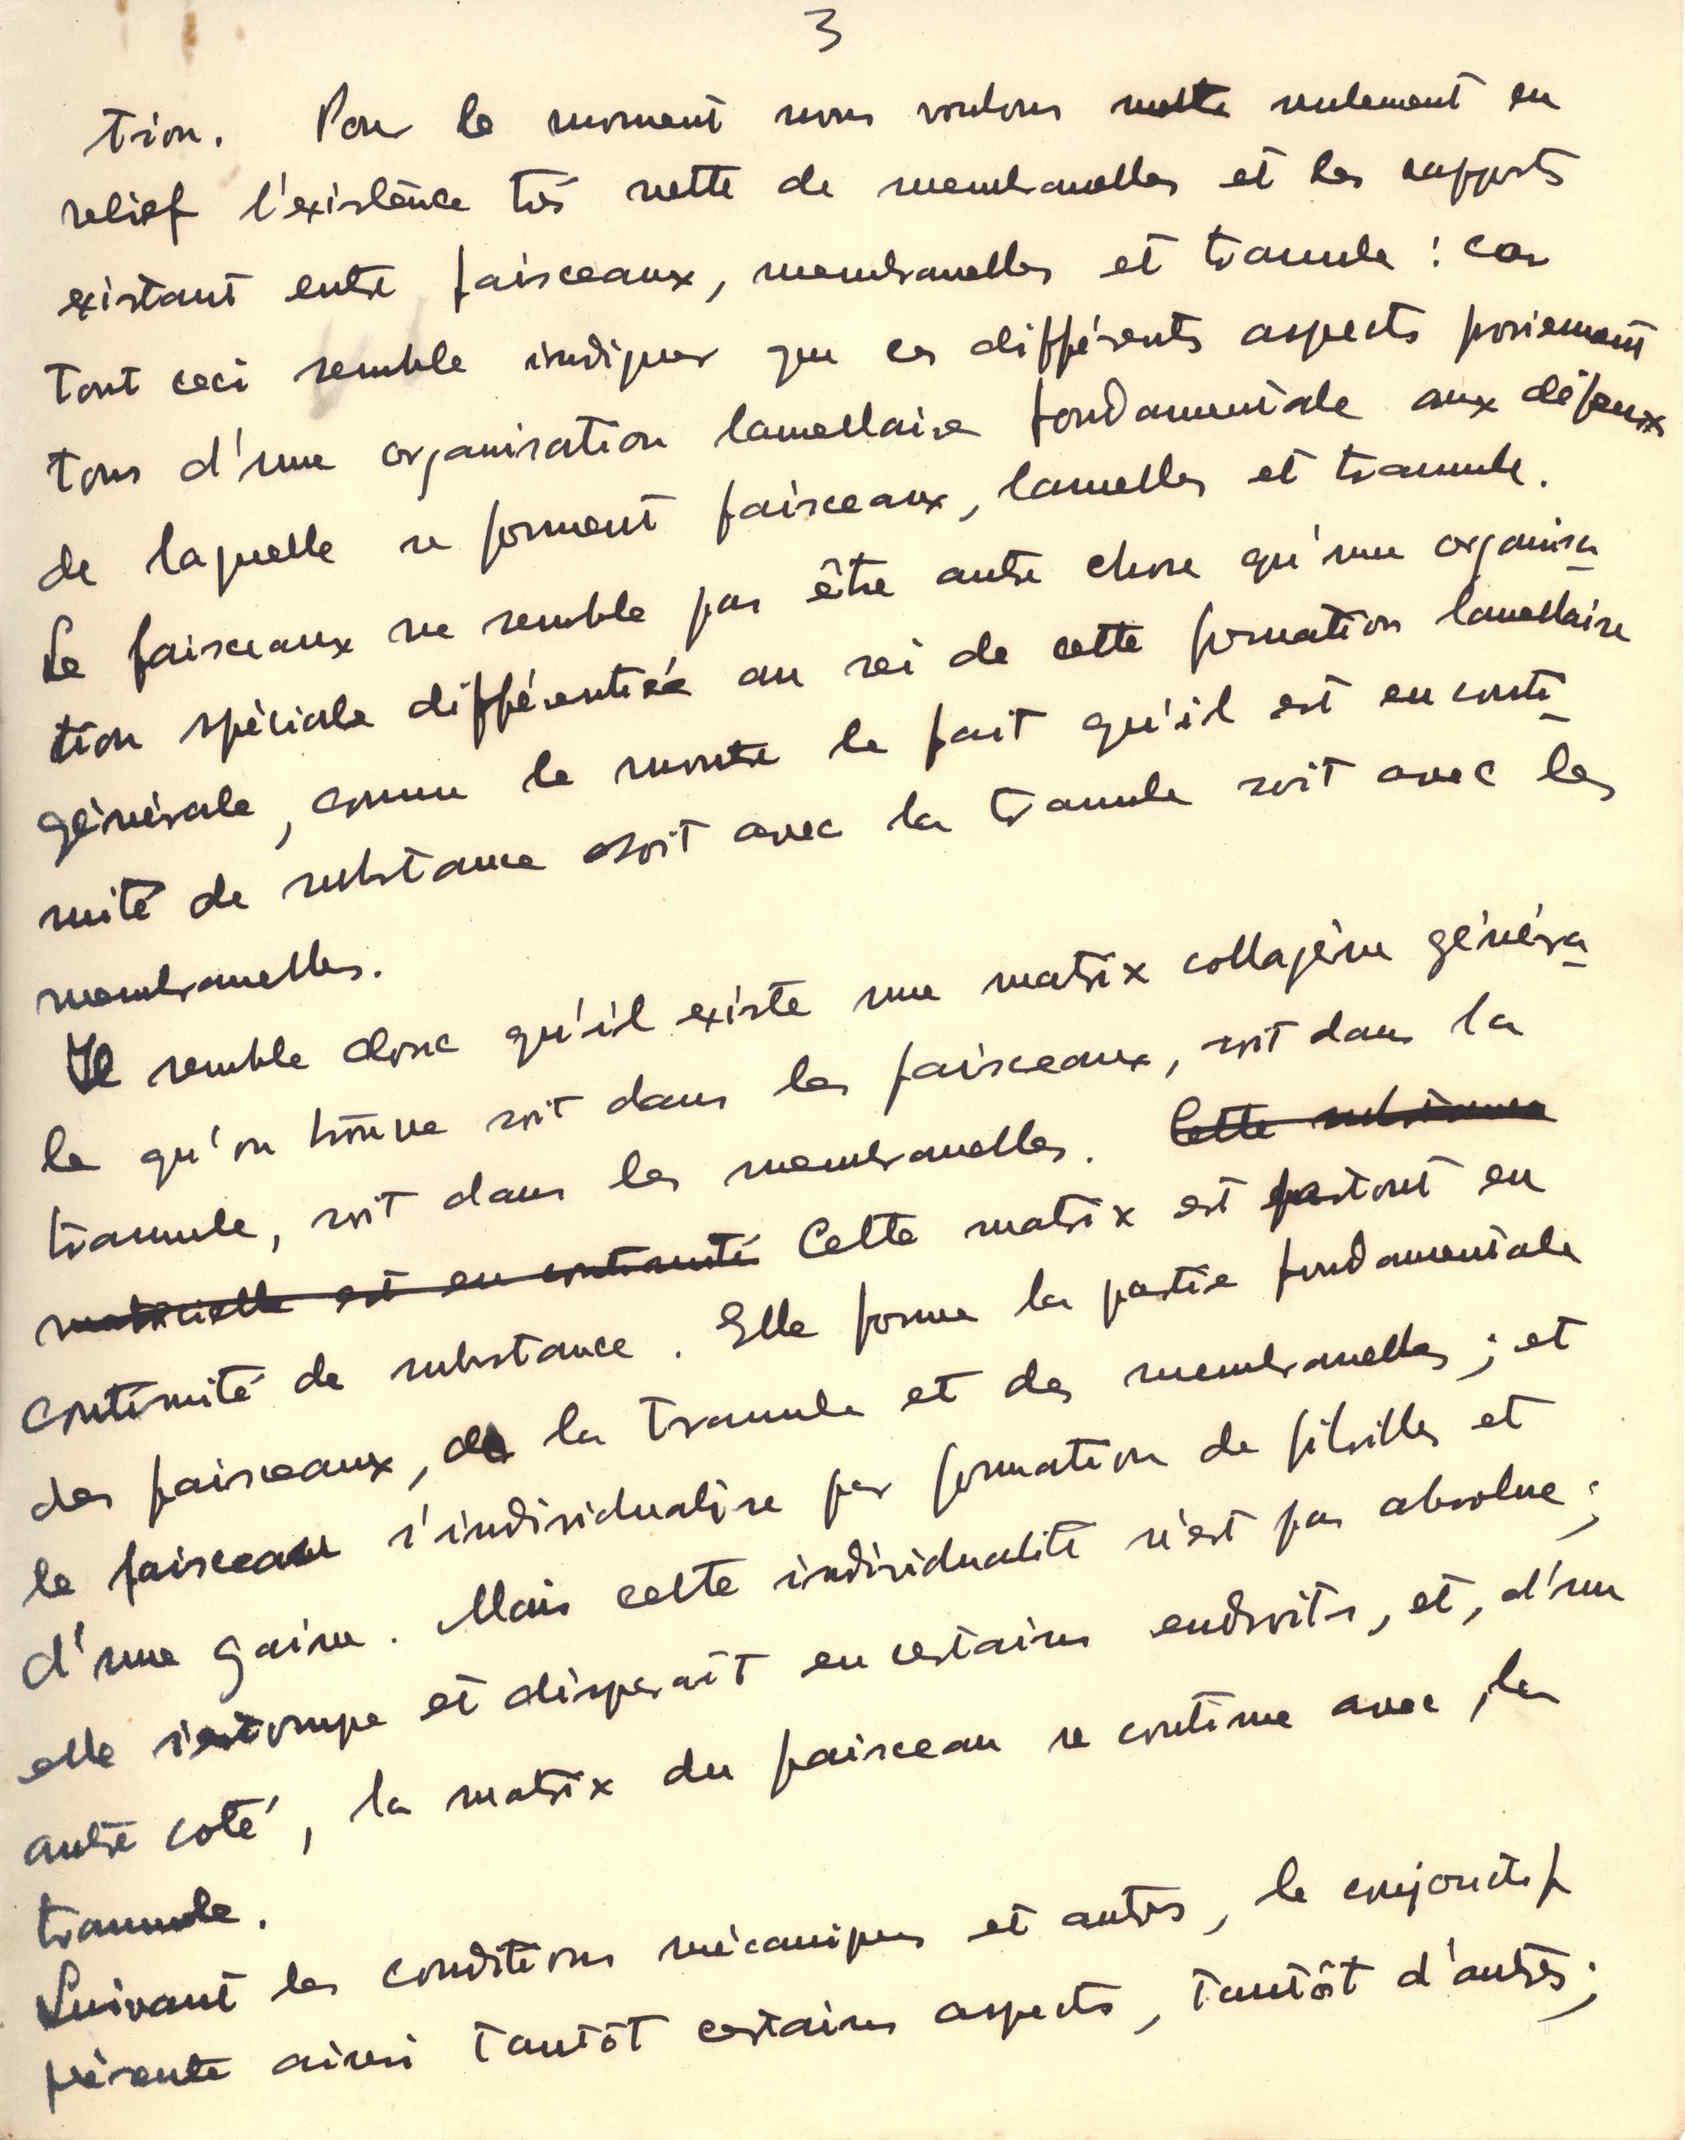 3
tion. Pour le moment nous voulons mettre seulement en
relief l'existence très nette de membranelles et les rapports
existant entre faisceaux, membranelles et tramule : car
tout ceci semble indiquer que ces différents aspects proviennent
tous d'une organisation lamellaire fondamentale aux dépenx
de laquelle se forment faisceaux, lamelles et tramule.
Le faisceaux ne semble pas être autre chose qu'une organisa
tion spéciale différentiée au sei de cette formation lamellaire
générale, comme le montre le fait qu'il est en conti
nuité de substance soit avec la tramule soit avec les
membranelles.
Il semble donc qu'il existe une matrix collagène généra
le qu'on trouve soit dans les faisceaux, soit dans la
tramule, soit dans les membranelles. Cette substance
matricielle est en continuité Cette matrix est partout en
continuité de substance. Elle forme la partie fondamentale
des faisceaux, de la tramule et des membranelles ; et
le faisceau s'individualise par formation de fibrilles et
d'une gaine. Mais cette individualité n'est pas absolue ;
elle s'estompe et disparaît en certains endroits, et, d'un
autre coté, la matrix du faisceau se continue avec la
tramule.
Suivant les conditions mécaniques et autres, le conjonctif
présente ainsi tantôt certains aspects, tantôt d'autres ;